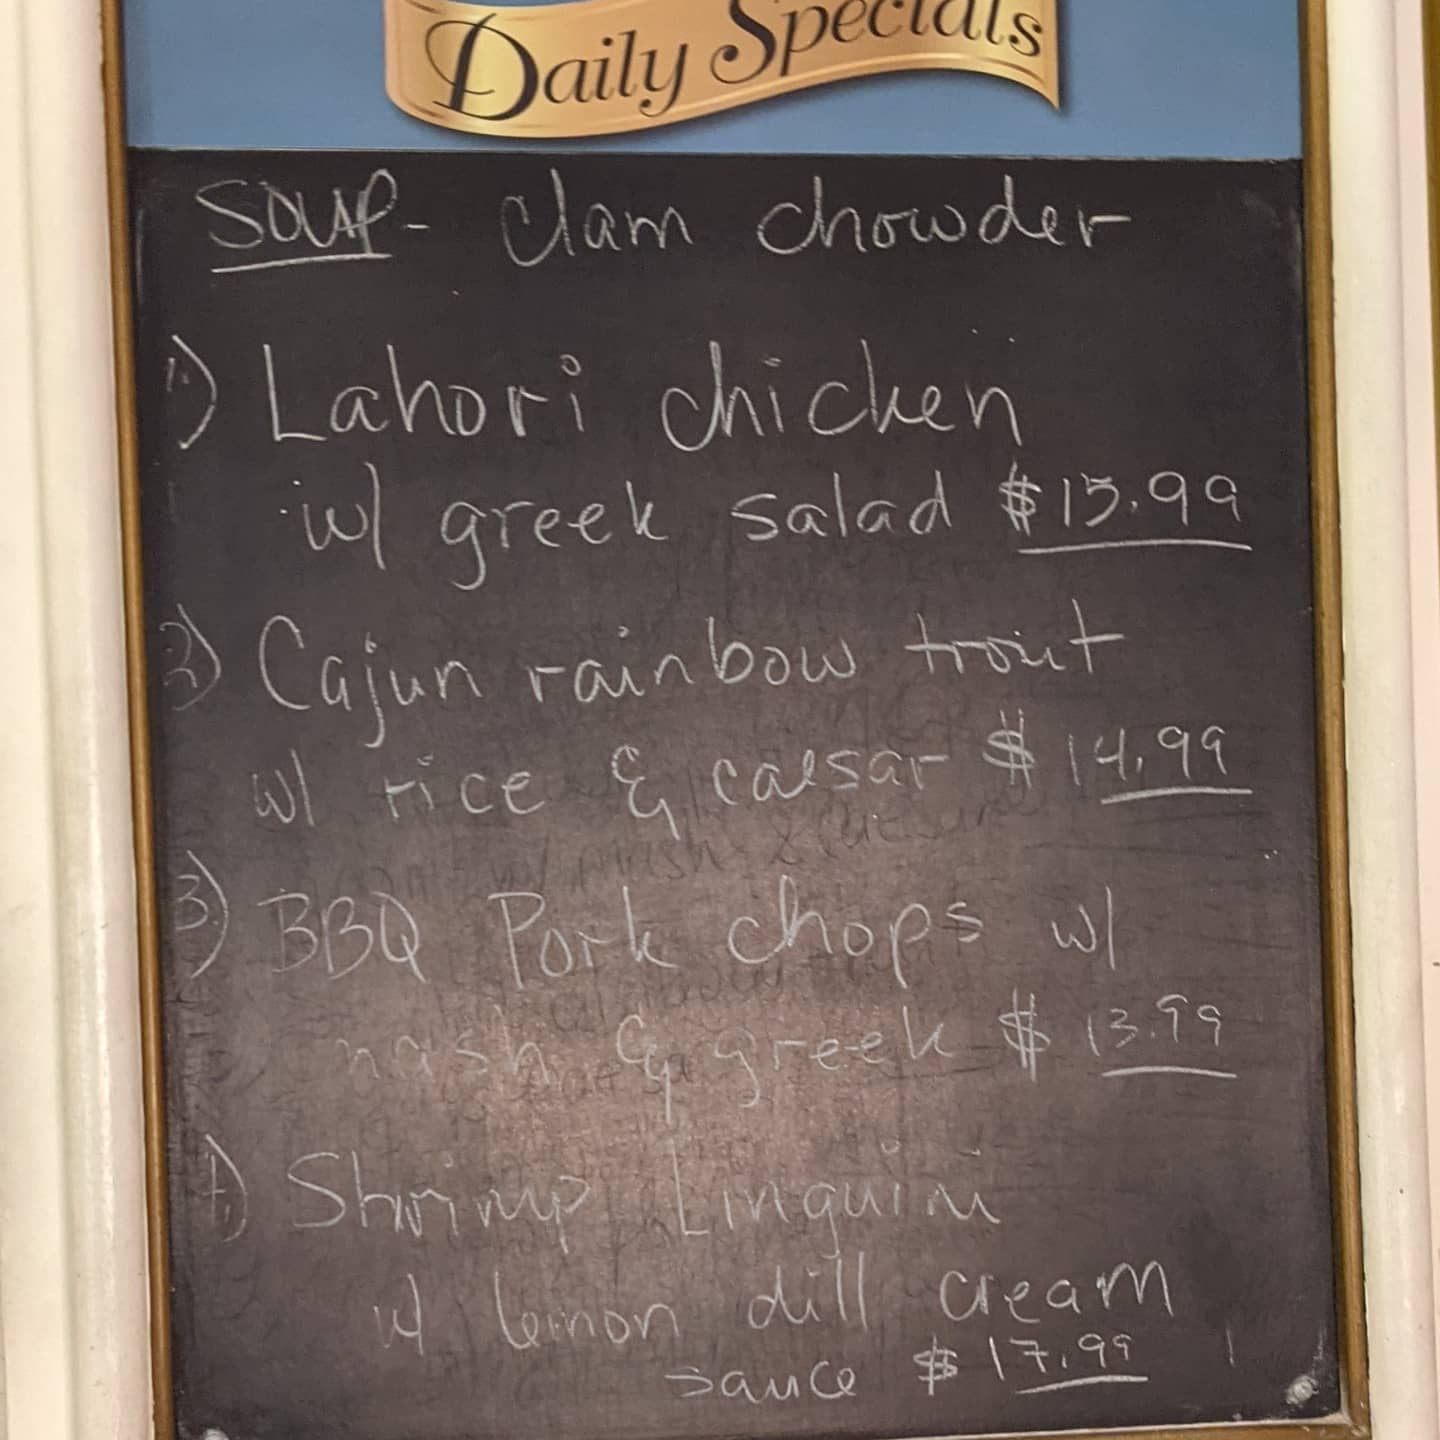 Daily Specials
SOUP- Clam chowder
1.) Lahori chicken
w/ greek salad $15.99
2) Cajun rainbow trout
w/ rice & caesar $14.99
3) BBQ Pork chops w/
mash & greek $13.99
4.) Shrimp Linguini
w/ lemon dill cream
sauce $17.99